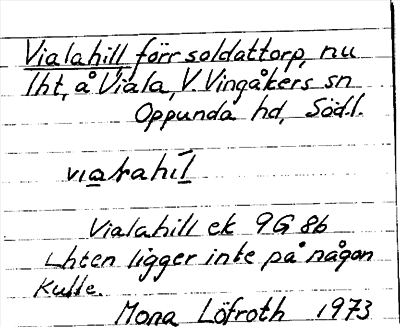 Vialahill förr soldattorp, nu
lht, å Viala, V. Vingåkers sn
Oppunda hd, Södl.
Vialahill ek 9G 8b
Lhten ligger inte på någon
kulle.
Mona Löfroth 1973